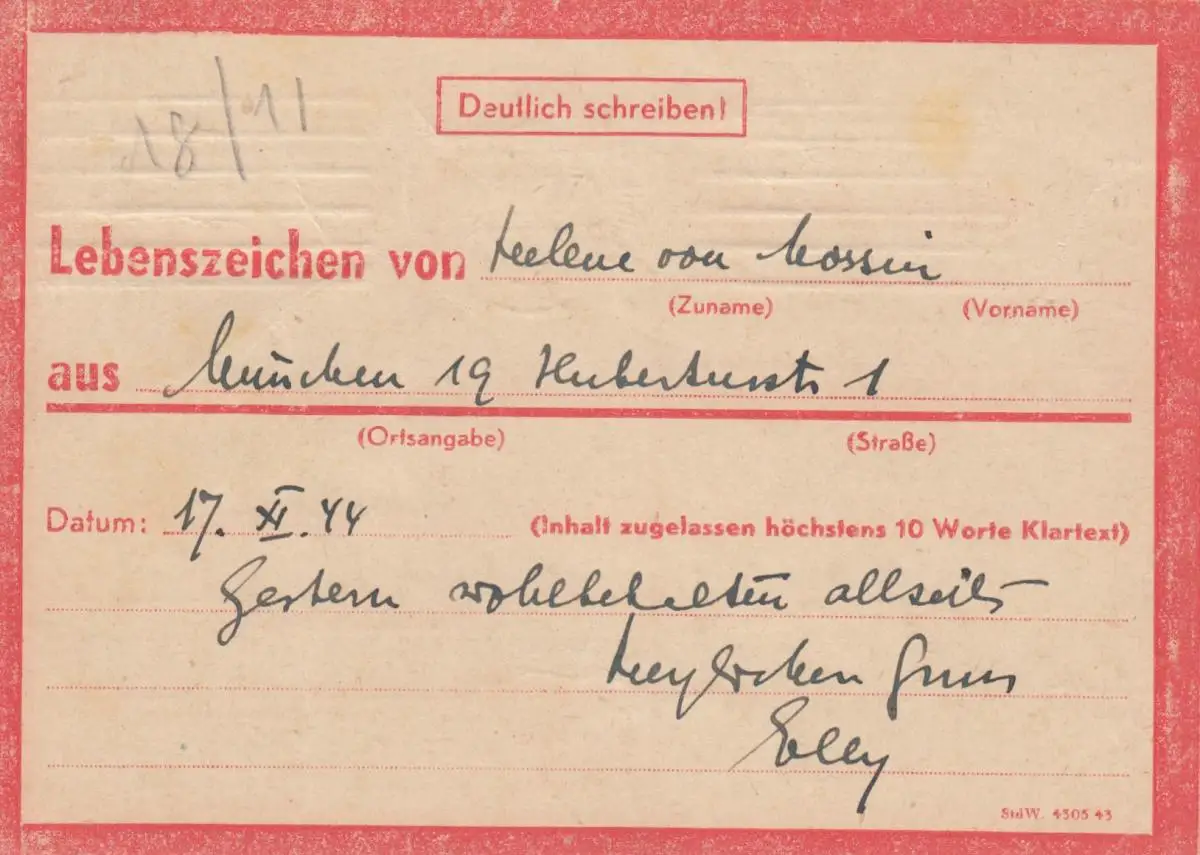 18/11
Deutlich schreiben!
Lebenszeichen von Helene von Mossin
(Zuname) (Vorname)
aus München 19 Hubertusstr 1
(Ortsangabe) (Straße)
Datum: 17. XI. 44 (Inhalt zugelassen höchstens 10 Worte Klartext)
Gestern wohlbehalten allseits
Gruss
Elly
StdW. 4305 43